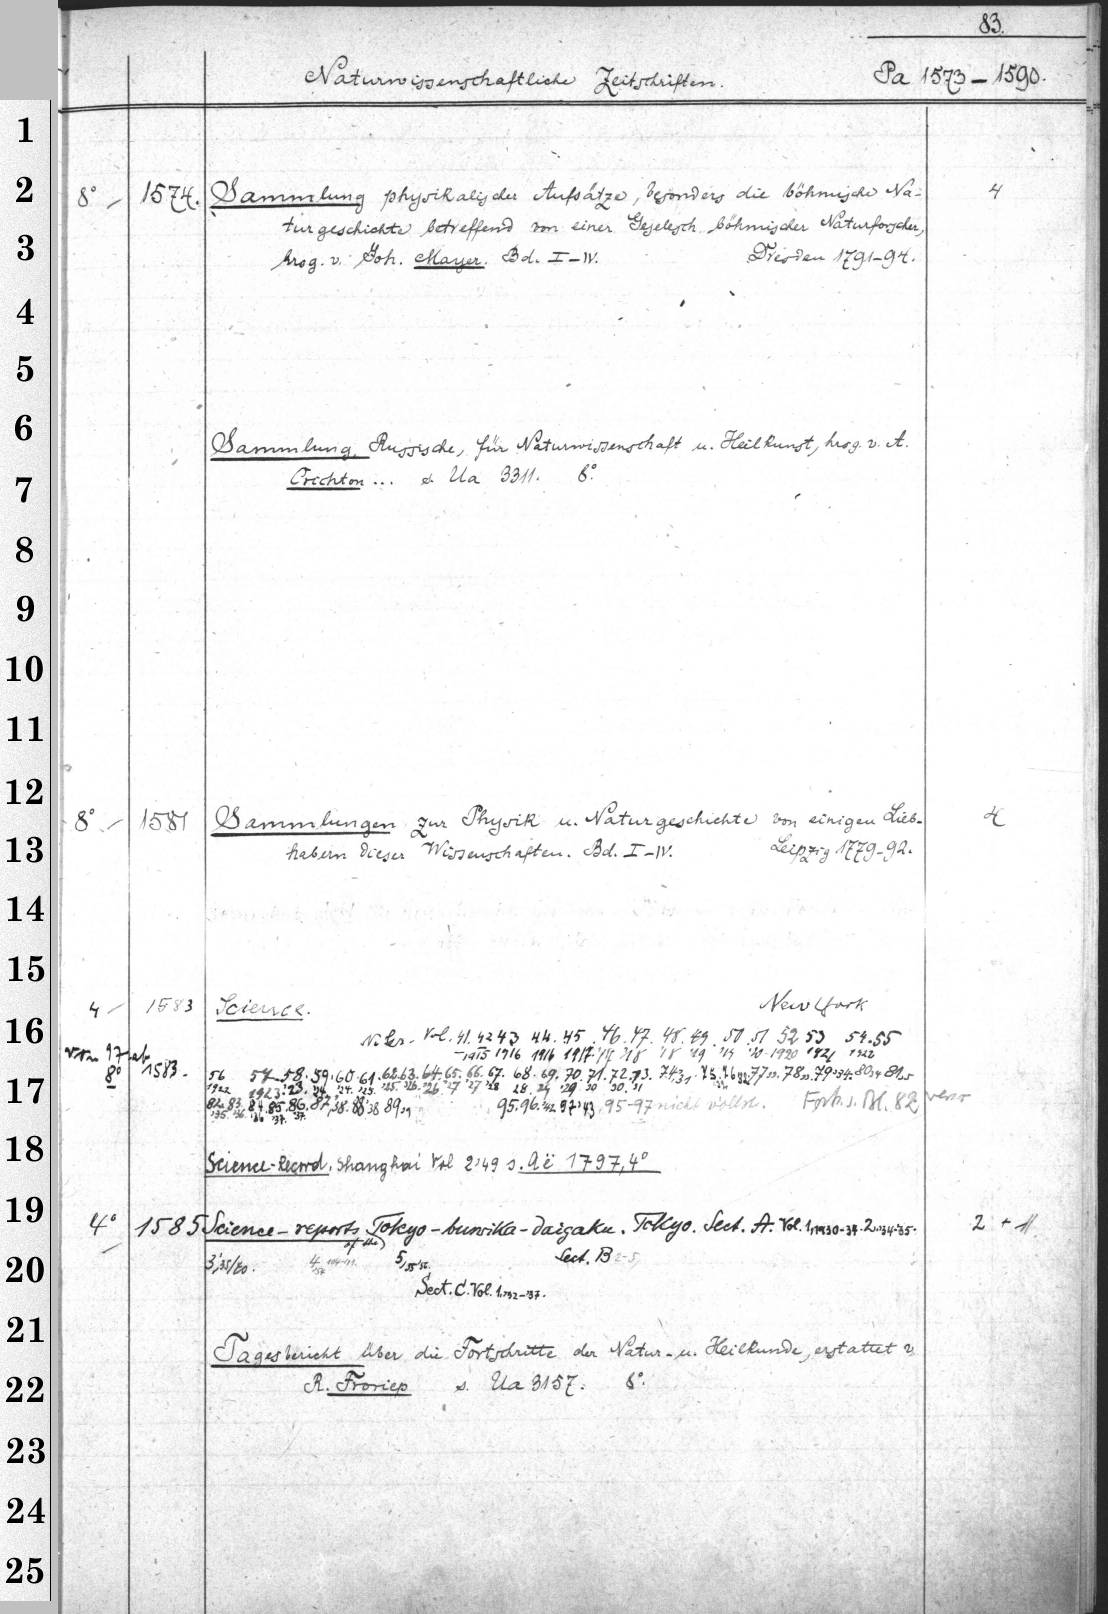 83.
Naturwissenschaftliche Zeitschriften. Pa 1573-1590.
1
2
3
4
5
6
7
8
9
10
11
12
13
14
15
16
17
18
19
20
21
22
23
24
25
8° 1574. Sammlung physikalischer Aufsätze, besonders die böhmische Na-
turgeschichte betreffend von einer Gesellsch. böhmischer Naturforscher, 4
hrsg. v. Joh. Mayer. Bd. I-IV. Dresden 1791-94.
Sammlung, Russische, für Naturwissenschaft u. Heilkunst, hrsg. v. A.
Crichton... s. Ua 3311. 8°.
8° 1581 Sammlungen zur Physik u. Naturgeschichte von einigen Lieb- 4
habern dieser Wissenschaften. Bd. I-IV. Leipzig 1779-92.
4 1583 Science. New York
N. Ser. Vol. 41. 42 43 44. 45. 46. 47. 48. 49. 50. 51 52 53 54. 55
von 97 ab 1915 1916 1916 1917 '18 '18 '19 '19 '20 1920 1921 1922
8° 1583. 56 57. 58. 59. 60. 61. 62. 63. 64. 65. 66. 67. 68. 69. 70. 71. 72. 73. 74. 75. 76 77. 78. 79. 80. 81.
1922 1923
82. 83. 84. 85. 86. 87. 88. 89. 95. 96. 97. 95-97 nicht vollst. Forts. s. Bl. 82 verso
Science-Record. Shanghai Vol 2 '49 s. Aë 1797, 4°
4° 1585 Science-reports of the Tokyo-bunrika-daigaku. Tokyo. Sect. A. Vol. 1, 1930-34. 2. '34-35. 2 + 11
3, 35/40. 4 5 Sect. B 2-5,
Sect. C. Vol. 1. '32-'37.
Tagesbericht über die Fortschritte der Natur- u. Heilkunde, erstattet v
R. Froriep s. Ua 3157. 8°.